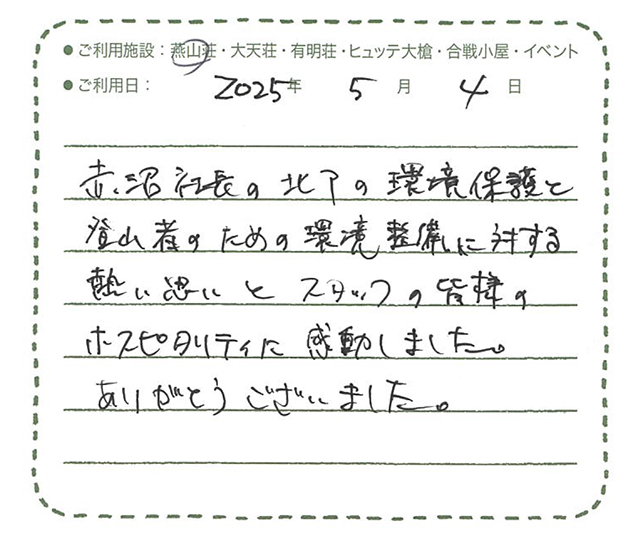 ● ご利用施設：燕山荘・大天荘・有明荘・ヒュッテ大槍・合戦小屋・イベント
● ご利用日： 2025年 5月 4日
赤沼社長の北アの環境保護と
登山者のための環境整備に対する
熱い思いとスタッフの皆様の
ホスピタリティに感動しました。
ありがとうございました。